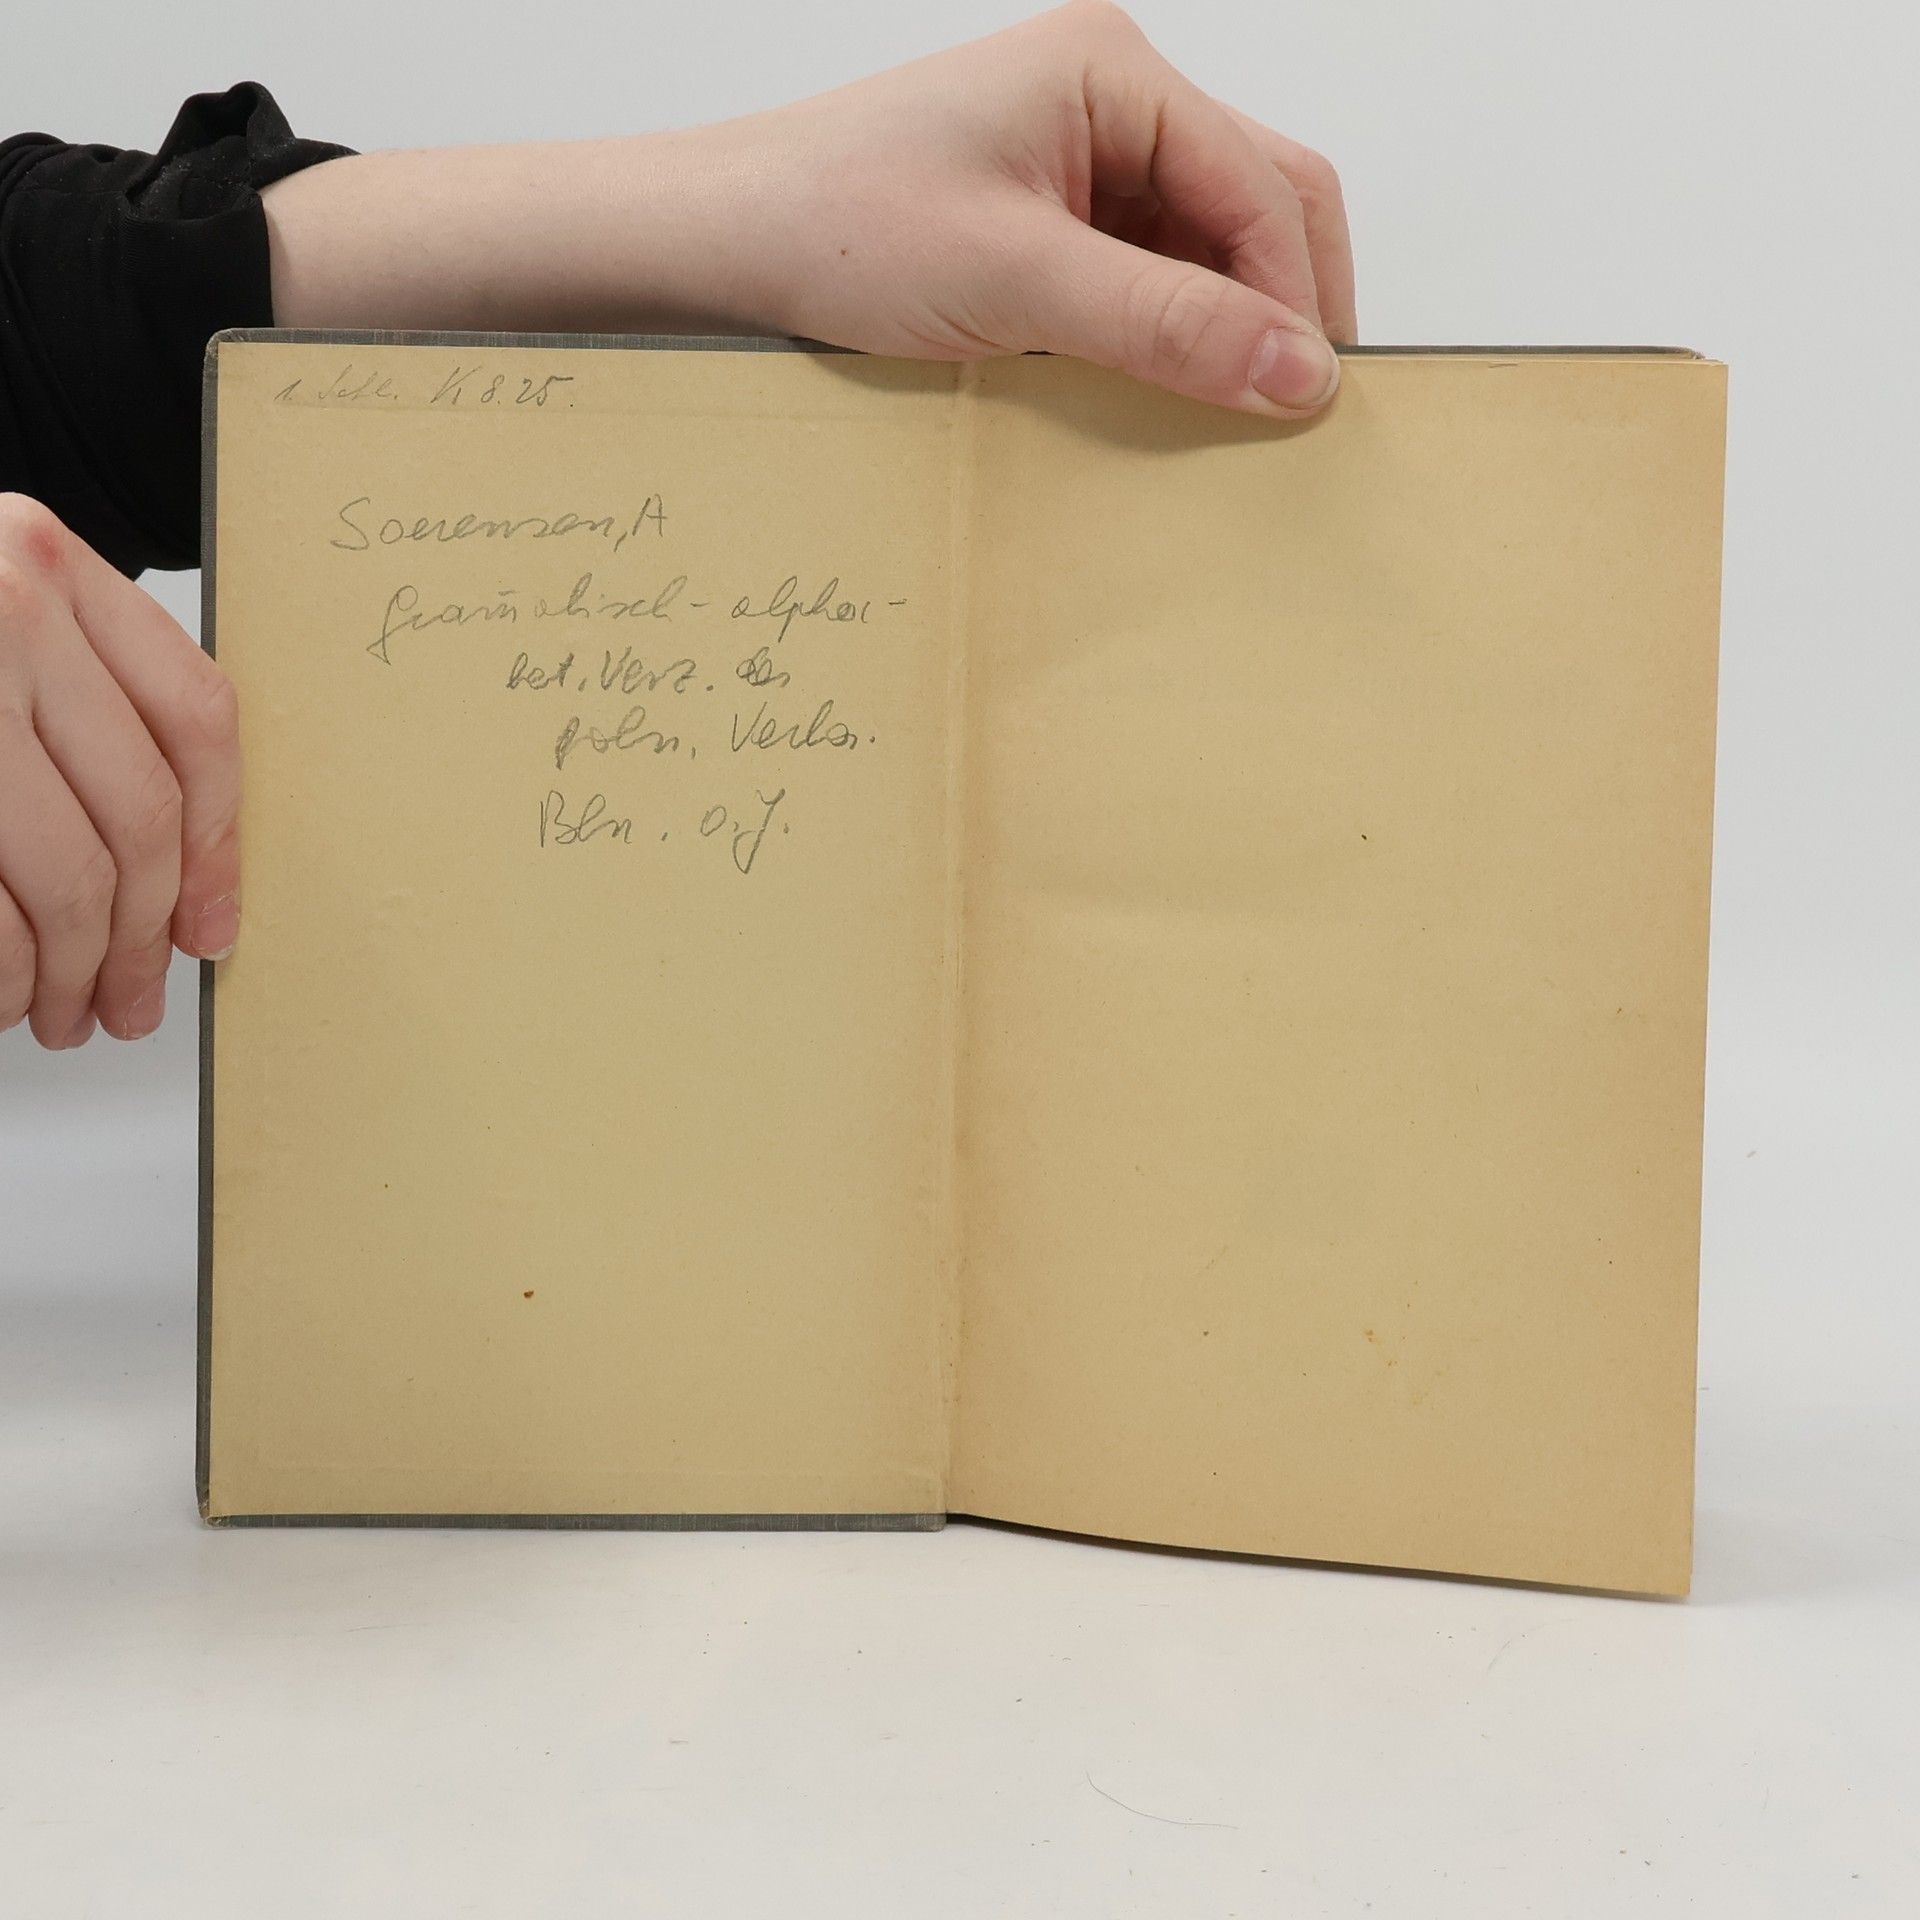 K 8.25.
Soerensen, A
Gram̄atisch-alpha-
bet. Verz. der
poln. Verba.
Bln. o.J.